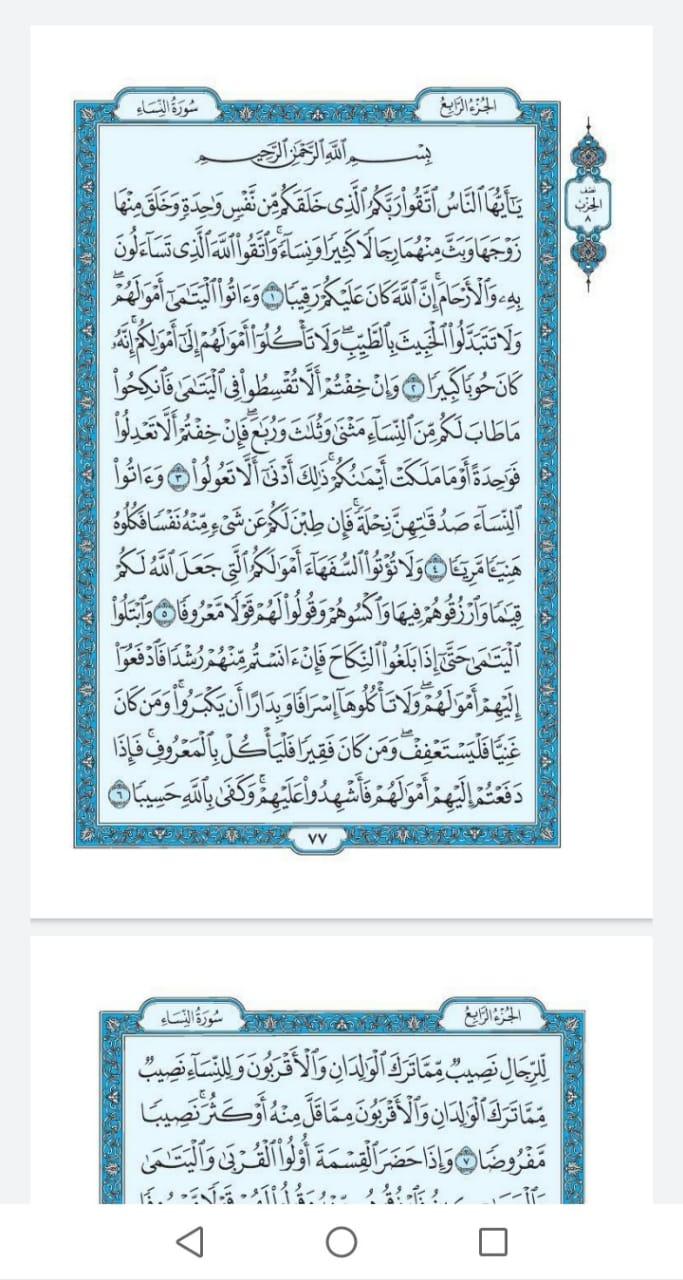 سُورَةُ النِّسَاءِ
الجُزْءُ الرَّابِعُ
نصف
الحزب
٨
بِسْمِ ٱللَّهِ ٱلرَّحْمَٰنِ ٱلرَّحِيمِ
يَٰٓأَيُّهَا ٱلنَّاسُ ٱتَّقُوا۟ رَبَّكُمُ ٱلَّذِى خَلَقَكُم مِّن نَّفْسٍ وَٰحِدَةٍ وَخَلَقَ مِنْهَا
زَوْجَهَا وَبَثَّ مِنْهُمَا رِجَالًا كَثِيرًا وَنِسَآءً ۚ وَٱتَّقُوا۟ ٱللَّهَ ٱلَّذِى تَسَآءَلُونَ
بِهِۦ وَٱلْأَرْحَامَ ۚ إِنَّ ٱللَّهَ كَانَ عَلَيْكُمْ رَقِيبًا ١ وَءَاتُوا۟ ٱلْيَتَٰمَىٰٓ أَمْوَٰلَهُمْ ۖ
وَلَا تَتَبَدَّلُوا۟ ٱلْخَبِيثَ بِٱلطَّيِّبِ ۖ وَلَا تَأْكُلُوٓا۟ أَمْوَٰلَهُمْ إِلَىٰٓ أَمْوَٰلِكُمْ ۚ إِنَّهُۥ
كَانَ حُوبًا كَبِيرًا ٢ وَإِنْ خِفْتُمْ أَلَّا تُقْسِطُوا۟ فِى ٱلْيَتَٰمَىٰ فَٱنكِحُوا۟
مَا طَابَ لَكُم مِّنَ ٱلنِّسَآءِ مَثْنَىٰ وَثُلَٰثَ وَرُبَٰعَ ۖ فَإِنْ خِفْتُمْ أَلَّا تَعْدِلُوا۟
فَوَٰحِدَةً أَوْ مَا مَلَكَتْ أَيْمَٰنُكُمْ ۚ ذَٰلِكَ أَدْنَىٰٓ أَلَّا تَعُولُوا۟ ٣ وَءَاتُوا۟
ٱلنِّسَآءَ صَدُقَٰتِهِنَّ نِحْلَةً ۚ فَإِن طِبْنَ لَكُمْ عَن شَىْءٍ مِّنْهُ نَفْسًا فَكُلُوهُ
هَنِيٓـًٔا مَّرِيٓـًٔا ٤ وَلَا تُؤْتُوا۟ ٱلسُّفَهَآءَ أَمْوَٰلَكُمُ ٱلَّتِى جَعَلَ ٱللَّهُ لَكُمْ
قِيَٰمًا وَٱرْزُقُوهُمْ فِيهَا وَٱكْسُوهُمْ وَقُولُوا۟ لَهُمْ قَوْلًا مَّعْرُوفًا ٥ وَٱبْتَلُوا۟
ٱلْيَتَٰمَىٰ حَتَّىٰٓ إِذَا بَلَغُوا۟ ٱلنِّكَاحَ فَإِنْ ءَانَسْتُم مِّنْهُمْ رُشْدًا فَٱدْفَعُوٓا۟
إِلَيْهِمْ أَمْوَٰلَهُمْ ۖ وَلَا تَأْكُلُوهَآ إِسْرَافًا وَبِدَارًا أَن يَكْبَرُوا۟ ۚ وَمَن كَانَ
غَنِيًّا فَلْيَسْتَعْفِفْ ۖ وَمَن كَانَ فَقِيرًا فَلْيَأْكُلْ بِٱلْمَعْرُوفِ ۚ فَإِذَا
دَفَعْتُمْ إِلَيْهِمْ أَمْوَٰلَهُمْ فَأَشْهِدُوا۟ عَلَيْهِمْ ۚ وَكَفَىٰ بِٱللَّهِ حَسِيبًا ٦
٧٧
سُورَةُ النِّسَاءِ
الجُزْءُ الرَّابِعُ
لِّلرِّجَالِ نَصِيبٌ مِّمَّا تَرَكَ ٱلْوَٰلِدَانِ وَٱلْأَقْرَبُونَ وَلِلنِّسَآءِ نَصِيبٌ
مِّمَّا تَرَكَ ٱلْوَٰلِدَانِ وَٱلْأَقْرَبُونَ مِمَّا قَلَّ مِنْهُ أَوْ كَثُرَ ۚ نَصِيبًا
مَّفْرُوضًا ٧ وَإِذَا حَضَرَ ٱلْقِسْمَةَ أُو۟لُوا۟ ٱلْقُرْبَىٰ وَٱلْيَتَٰمَىٰ